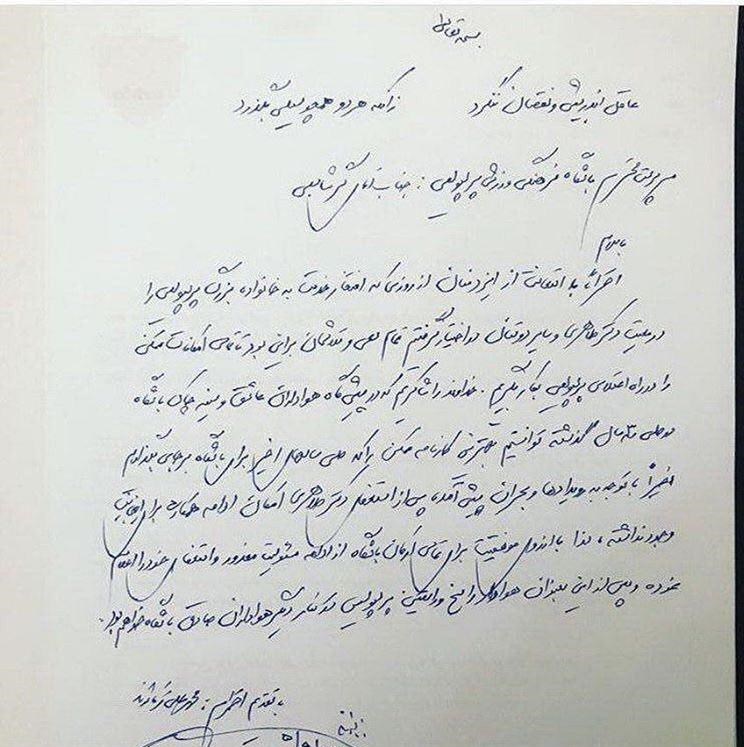 بسمه تعالی
عاقل اندر بیش و نقصان ننگرد زانکه هر دو همچو سیلی بگذرد
سرپرست محترم باشگاه فرهنگی ورزشی پرسپولیس : جناب آقای گرشاسبی
باسلام
احتراماً با استعانت از ایزد منان از روزی که افتخار خدمت به خانواده بزرگ پرسپولیس را
در معیت دکتر طاهری و سایر دوستان در اختیار گرفتم تمام سعی و تلاشمان براین بود تا تمامی امکانات ممکن
را در راه اعتلای پرسپولیس بکار بگیریم . خداوند را شاکریم که در پیشگاه هواداران عاشق و سینه چاک باشگاه
در طی سال گذشته توانستیم بهترین کارنامه ممکن را که طی سالهای اخیر برای باشگاه برجای بگذاریم
اخیراً با توجه به رویدادها و بحران پیش آمده پس از استعفای دکتر طاهری امکان ادامه همکاری برای اینجانب
وجود نداشته ، لذا با آرزوی موفقیت برای تمامی ارکان باشگاه از ادامه مسئولیت معذور و استعفای خود را اعلام
نموده و پس از این بعنوان هوادار راسخ و راستین پرسپولیس در کنار دیگر هواداران صادق باشگاه خواهم بود.
با تقدیم احترام :